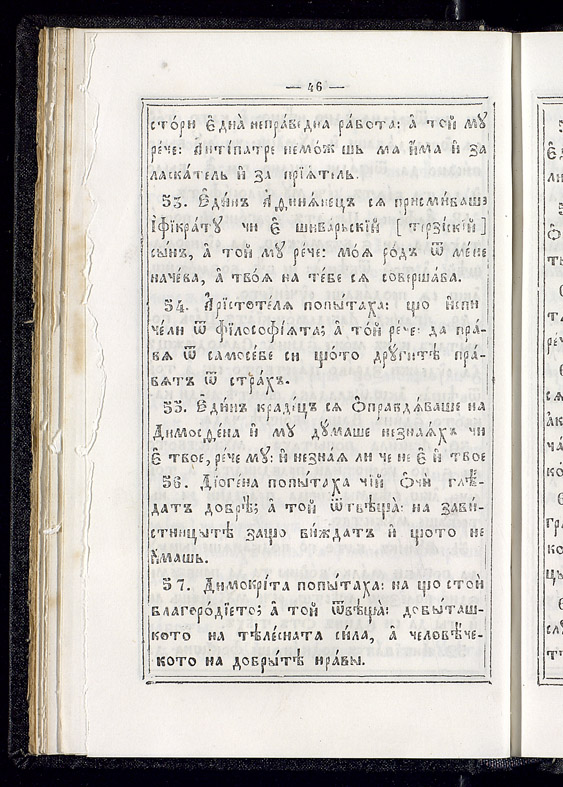 — 46 —
сто́ри є҆дна̀ непра́ведна ра́бота: а҆ той мꙋ
ре́че: Антїпатре немо́жшь ма и҆ма и҆ за
ласка́тель и҆ за прїѧтель.
53. Є҆ди́нъ Аѳиня́нецъ сѧ присмиваше
І҆фїкра́тꙋ чи є҆ шива́рьскїй [ тєрзі́скїй ]
сы́нъ, а҆ той мꙋ ре́че: моѧ̀ ро́дъ ѿ ме́не
наче́ва, а҆ твоѧ̀ на те́бе сѧ соверша́ва.
54. А҆рїсто́телѧ попы́таха: що и҆спи
че́ли ѿ фїлософі́ѧта; а҆ то́й ре́че: да пра́-
вѧ ѿ самосе́бе си що́то дрꙋ́гитѣ пра́-
вѧтъ ѿ стра́хъ.
55. Є҆ди́нъ краде́цъ сѧ ѡ҆правдѧ́ваше на
Димосѳе́на и҆ мꙋ дꙋ́маше незна́ѧхъ чи
є҆ твое, ре́че мꙋ: и҆ незна́ѧ ли че не є҆ и҆ твое
56. Дїоге́на попы́таха чїй ѻ҆чи́ глѣ́-
датъ добрѣ́; а҆ той ѿгвѣща̀: на зави́-
стницытѣ защо ви́ждатъ и҆ що́то не
и҆́машь.
57. Димокрі́та попы́таха: на що стой
благоро́дїето; а҆ той ѿвѣща̀: довы́таш-
кото на тѣле́сната си́ла, а҆ человѣ́че-
кото на добры́тѣ нра́вы.